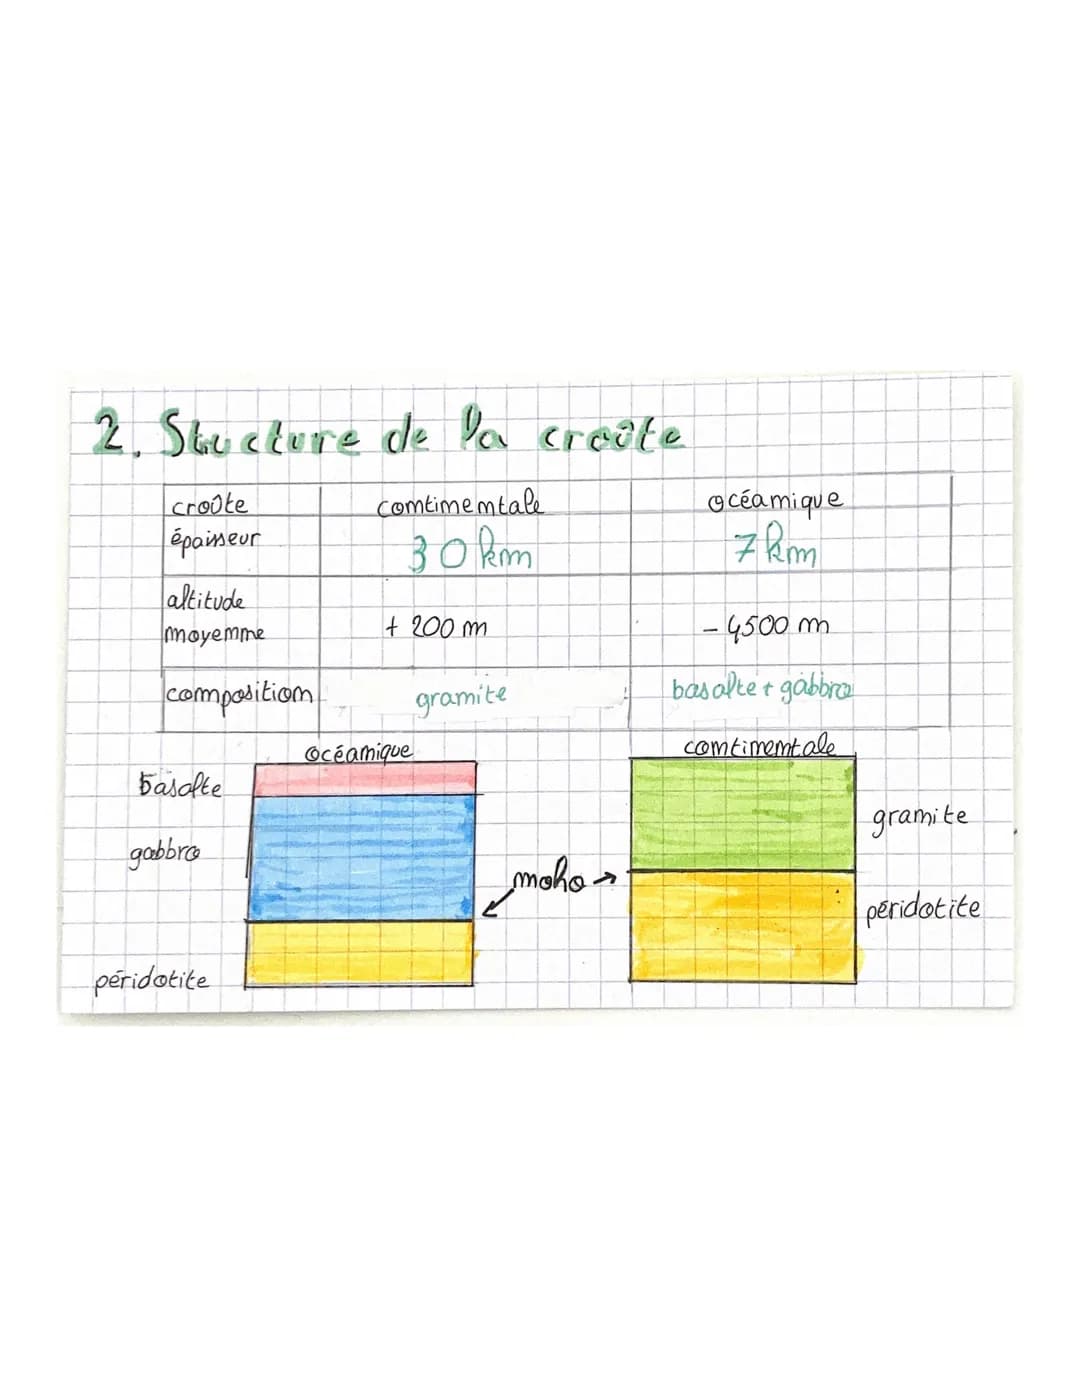 2. Structure de la croûte
croûte continentale océanique
épaisseur 30 km 7 km
altitude
moyenne + 200 m - 4500 m
composition granite basalte + gabbro
océanique continentale
basalte
granite
gabbro
moho →
péridotite
péridotite